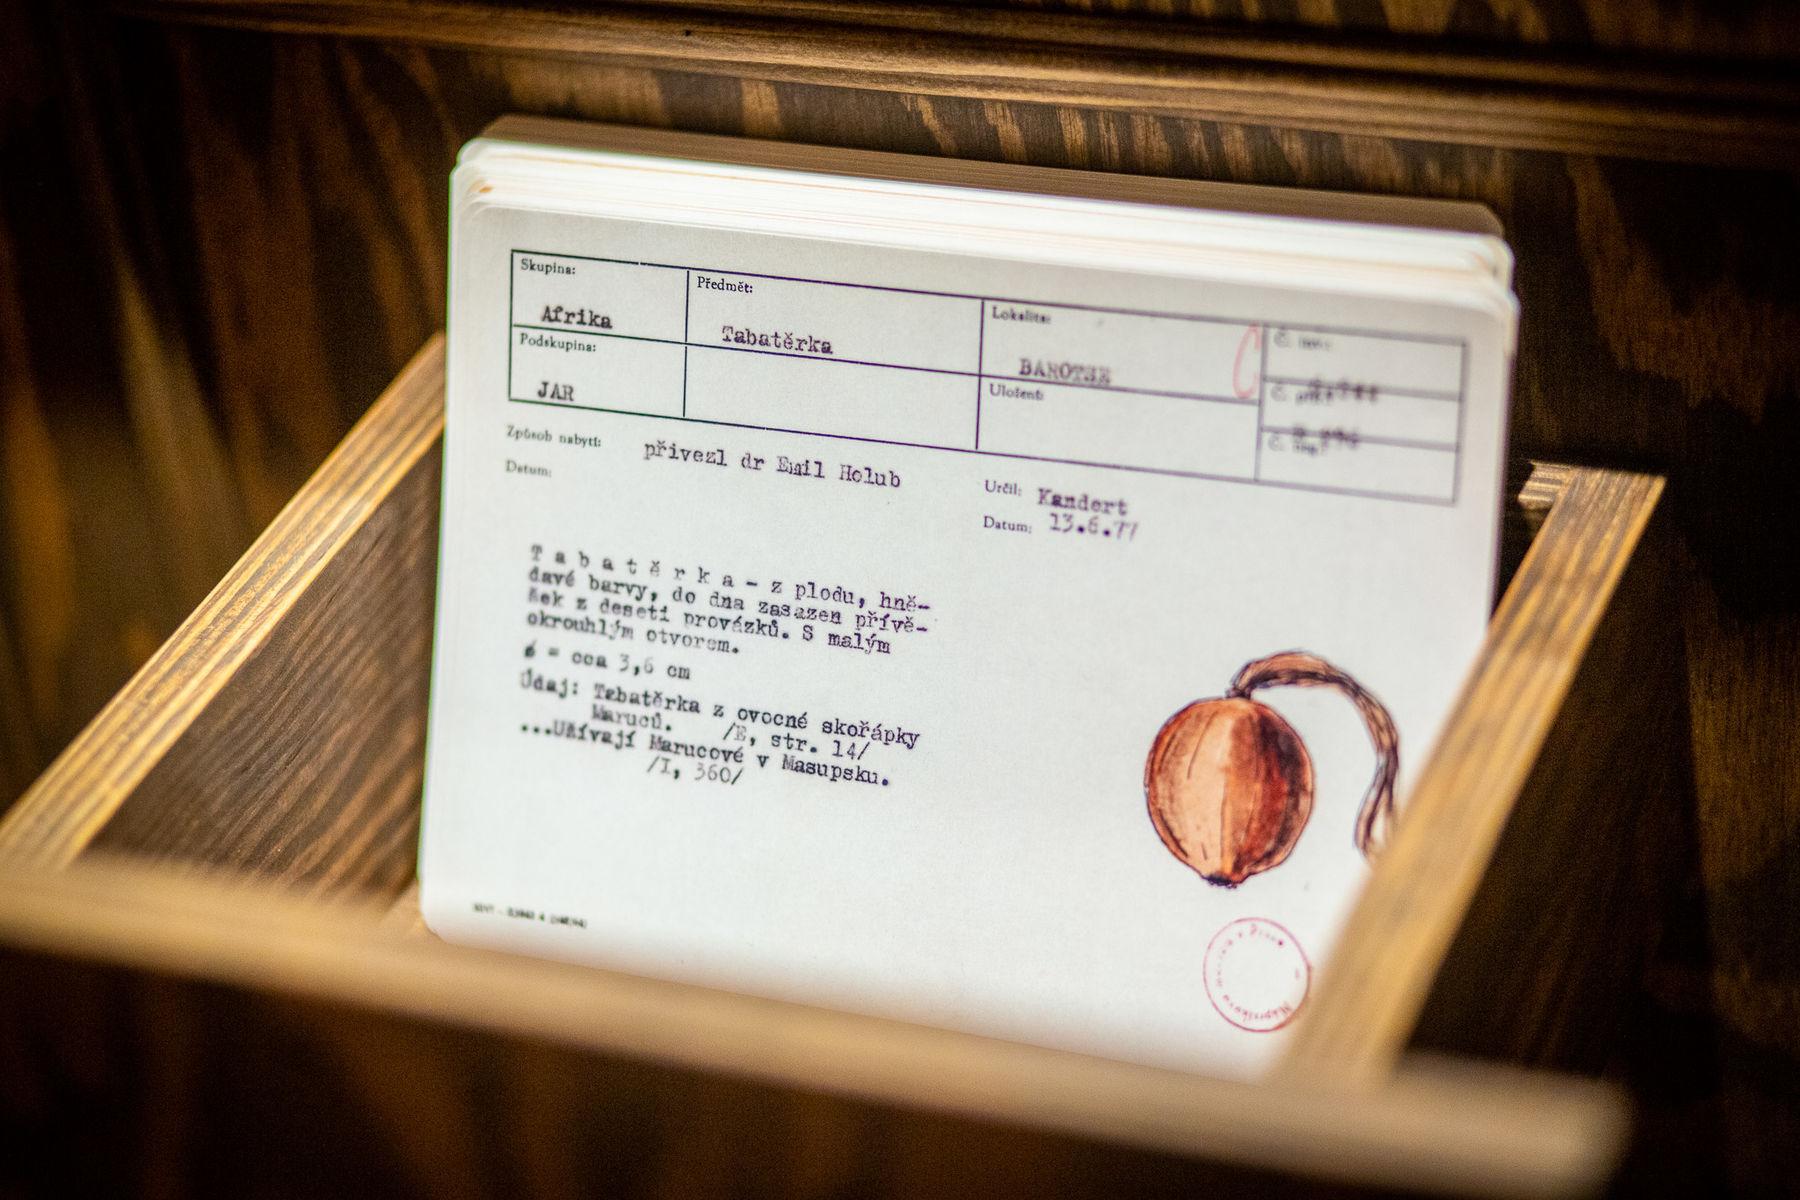 Skupina:
Afrika
Předmět:
Tabatěrka
Lokalita:
BAROTSE
C
Č. inv.:
Podskupina:
JAR
Uložení:
Způsob nabytí: přivezl dr Emil Holub
Datum:
Určil: Kandert
Datum: 13.6.77
T a b a t ě r k a - z plodu, hně-
davé barvy, do dna zasazen přívě-
šek z deseti provázků. S malým
okrouhlým otvorem.
ø = cca 3,6 cm
Údaj: Tabatěrka z ovocné skořápky
Maruců. /E, str. 14/
...Užívají Marucové v Masupsku.
/I, 360/